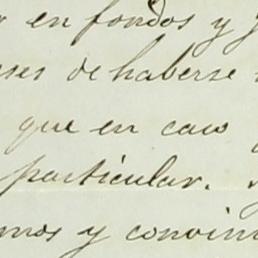 en fondos y
ses de haberse
que en caso
particular.
mos y convin